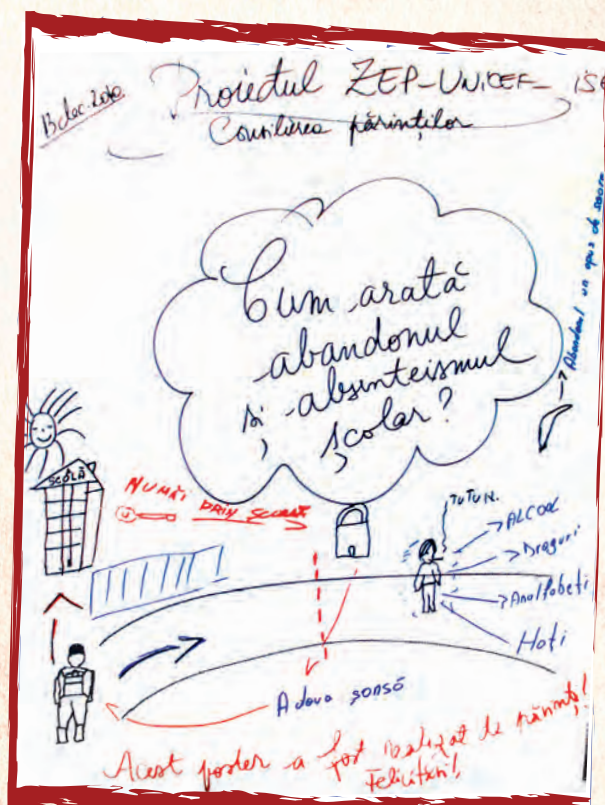 13 dec. 2010
Proiectul ZEP-UNICEF- ISE
Consilierea părinților
Abandonul un apus de soare
Cum arată
abandonul
și absinteismul
școlar?
ȘCOLĂ
NUMAI PRIN ȘCOALĂ
TUTUN.
ALCOOL
Droguri
Analfabeți
Hoți
A doua șonsă
Acest poster a fost realizat de părinți!
Felicitări!